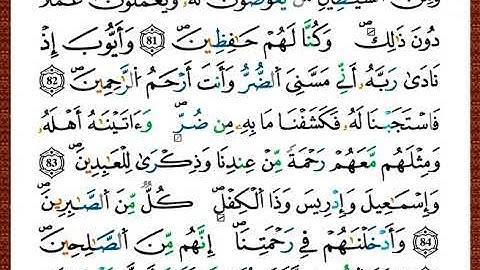 وَمِنَ ٱلشَّيَٰطِينِ مَن يَغُوصُونَ لَهُۥ وَيَعْمَلُونَ عَمَلًا
دُونَ ذَٰلِكَۖ وَكُنَّا لَهُمْ حَٰفِظِينَۖ 81 وَأَيُّوبَ إِذْ
نَادَىٰ رَبَّهُۥٓ أَنِّي مَسَّنِيَ ٱلضُّرُّ وَأَنتَ أَرْحَمُ ٱلرَّٰحِمِينَۖ 82
فَٱسْتَجَبْنَا لَهُۥ فَكَشَفْنَا مَا بِهِۦ مِن ضُرٍّۖ وَءَاتَيْنَٰهُ أَهْلَهُۥ
وَمِثْلَهُم مَّعَهُمْ رَحْمَةً مِّنْ عِندِنَا وَذِكْرَىٰ لِلْعَٰبِدِينَۖ 83
وَإِسْمَٰعِيلَ وَإِدْرِيسَ وَذَا ٱلْكِفْلِۖ كُلٌّ مِّنَ ٱلصَّٰبِرِينَۖ
84 وَأَدْخَلْنَٰهُمْ فِي رَحْمَتِنَاۖ إِنَّهُم مِّنَ ٱلصَّٰلِحِينَۖ